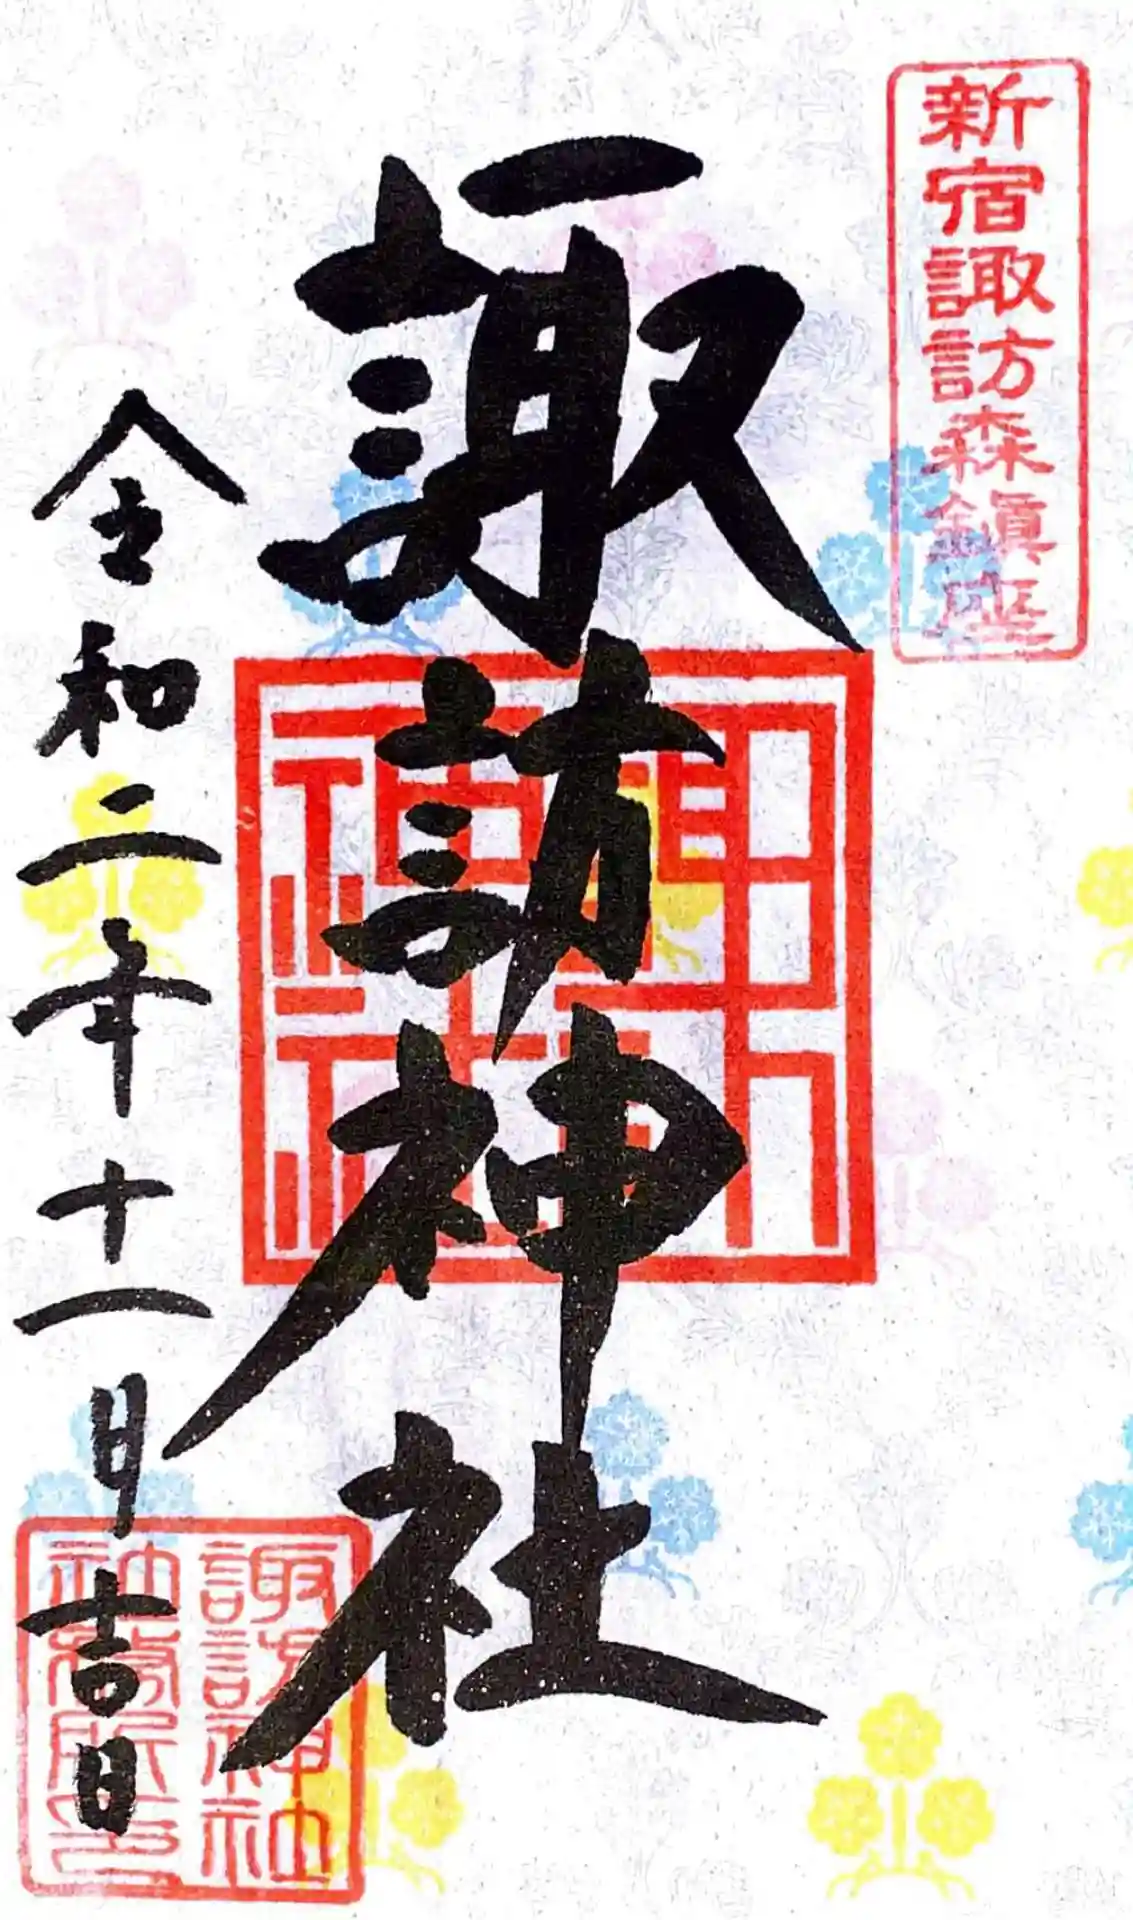 新宿諏訪森鎭座
諏訪神社
諏訪神社
令和二年十一月吉日
諏訪神社
社務所印